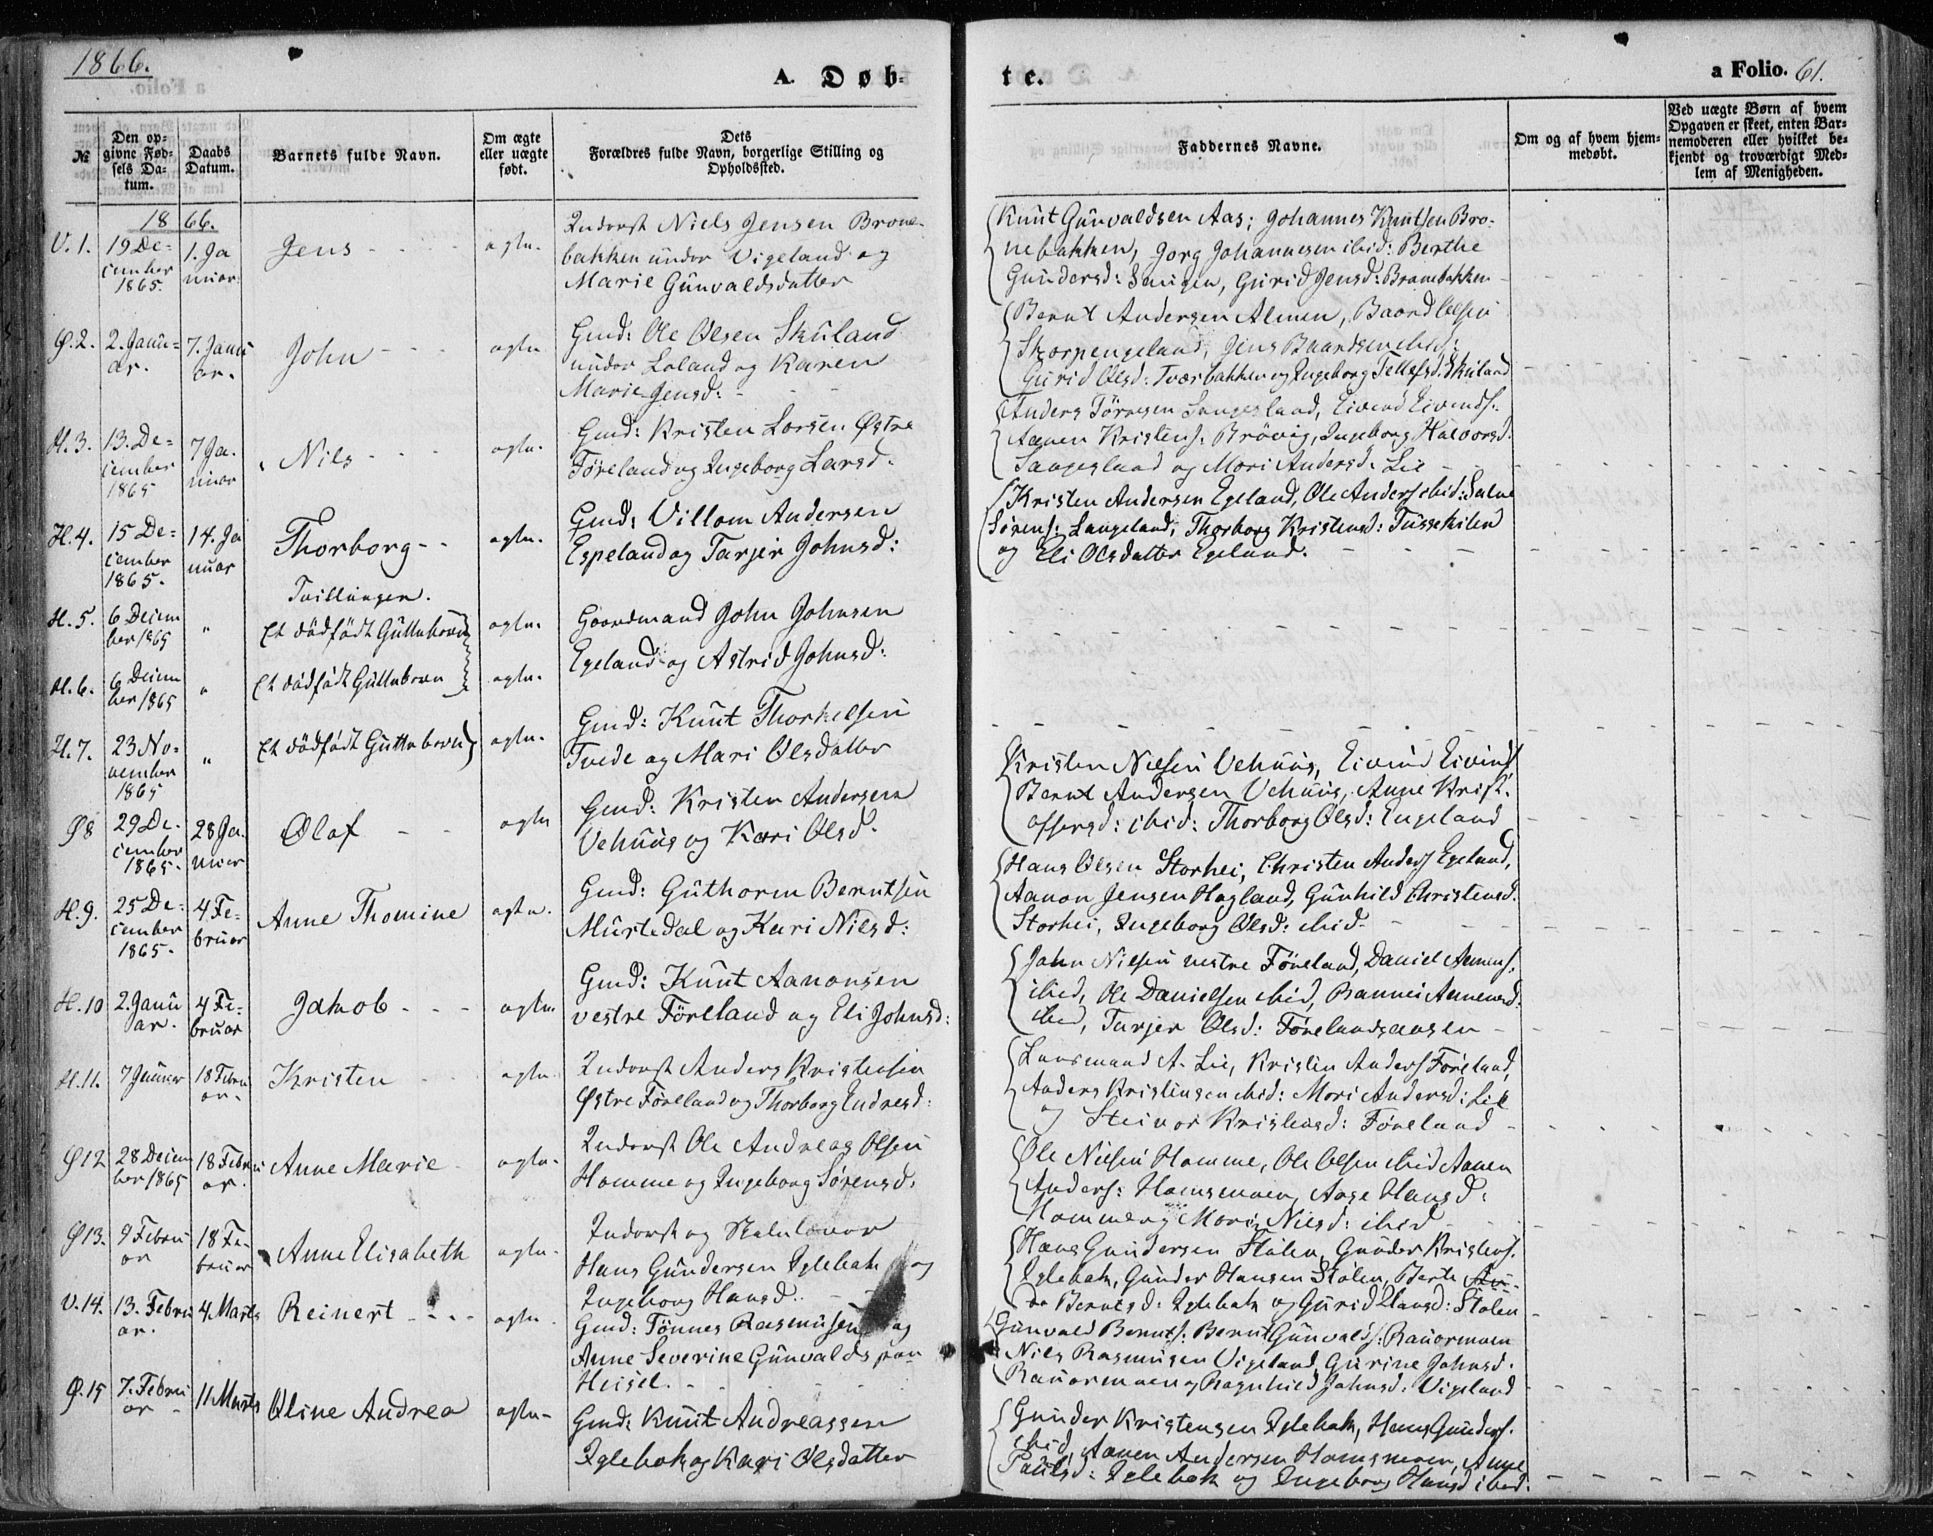 1866.
A. Døb-
te.
a Folio. 61.
№
Den op-
givne Fød-
sels Da-
tum.
Daabs
Datum.
Barnets fulde Navn.
Om ægte
eller uægte
født.
Dets
Forældres fulde Navn, borgerlige Stilling og
Opholdssted.
Faddernes Navne.
Om og af hvem hjem-
medøbt.
Ved uægte Børn af hvem
Opgaven er skeet, enten Bar-
nemoderen eller hvilket be-
kjendt og troværdigt Med-
lem af Menigheden.
1866.
V. 1. 19 De-
cember
1865. 1. Ja
nuar Jens - - - ægte. Inderst Niels Jensen Brone-
bakken under Vigeland og
Marie Gunvaldsdatter
Knut Gunvaldsen Aas, Johannes Knutsen Bro-
nebakken, Jørg Johannesen ibid: Berthe
Gundersd: Haugen, Gurid Jensd: Bronebakken
Ø. 2. 2. Janu-
ar. 7. Janu
ar. John - - - ægte. Gmd: Ole Olsen Skuland
under Loland og Karen
Marie Jensd: -
Bernt Andersen Almen, Baard Olsen
Skorpengeland, Jens Baardsen ibid:
Gurid Olsd: Tværbakken og Ingeborg Tellefsd: Skuland
H. 3. 13. De-
cember
1865 7 Ja-
nuar Nils - - - ægte. Gmd: Kristen Larsen Østre
Føreland og Ingeborg Larsd:
Anders Tørresen Langesland, Eivend Eivends:
Aanen Kristens: Brøvig, Ingeborg Halvorsd:
Langesland og Mari Andersd: Lie
H. 4. 15 De-
cember
1865. 14. Ja
nuar Thorborg - - ægte. Gmd: Villom Andersen
Espeland og Tarjer Johnsd:
Kristen Andersen Egeland, Ole Anders ibid: Salve
Sørens: Langeland, Thorborg Kristensd: Tussekilen
og Eli Olsdatter Egeland.
Tvillinger.
H. 5. 6 Decem
ber 1865 " Et dødfødt Guttebarn ægte. Gaardmand John Johnsen
Egeland og Astrid Johnsd:
H. 6. 6 Decem
ber 1865 " Et dødfødt Guttebarn ægte.
H. 7. 23 No-
vember
1865 " Et dødfødt Guttebarn ægte. Gmd: Knut Thorkelsen
Tvede og Mari Olsdatter
Ø 8 29 De-
cember
1865. 28 Ja-
nuar Olaf - - ægte Gmd: Kristen Andersen
Vehuus og Kari Olsd:
Kristen Nielsen Vehuus, Eivind Eivinds
Bernt Andersen Vehuus, Anne Krist-
offersd: ibid: Thorborg Olsd: Engeland
H. 9. 25 De-
cember
1865. 4. Fe-
bruar Anne Thomine ægte. Gmd: Guthorm Berntsen
Murtedal og Kari Nilsd:
Hans Olsen Storhei, Christen Anders Egeland,
Aanon Jensen Hagland, Gunhild Christensd:
Storhei, Ingeborg Olsd: ibid -
H. 10 2. Janu
ar. 4 Fe-
bruar Jakob - - - ægte. Gmd: Knut Aanonsen
vestre Føreland og Eli Johnsd:
John Nielsen vestre Føreland, Daniel Aanens.
ibid, Ole Danielsen ibid, Rannei Aanensd:
ibid, Tarjer Olsd: Førelandsaasen
H. 11. 7 Januar 18 Febru
ar. Kristen - - ægte Inderst Anders Kristensen
Østre Føreland og Thorborg Endresd:
Lensmand A. Lie, Kristen Anders Føreland,
Anders Kristensen ibid: Mari Andersd: Lie
og Steinor Kristensd: Føreland
Ø 12 28 Decem
ber 1865 18 Febru
ar. Anne Marie - ægte. Inderst Ole Andreas Olsen
Homme og Ingeborg Sørensd.
Ole Nielsen Homme, Ole Olsen ibid Aanen
Anders: Homsmoen, Aase Hansd:
Homme og Mari Nilsd: ibid
Ø 13. 9 Febru
ar 18 Fe-
bruar Anne Elisabeth ægte. Inderst og
Hans Gundersen Iglebæk og
Ingeborg Hansd:
Hans Gundersen Stølen, Gunder Kristens.
Iglebæk, Gunder Hansen Stølen, Berte
Berntsd: Iglebæk og Gurid Hansd: Stølen
V. 14. 13. Febru
ar. 4 Marts Reinert - - - ægte. Gmd: Tønnes Rasmusen og
Anne Severine Gunvalds paa
Heisel.
Gunvald Bernts: Bernt Gunvalds: Rauormoen
Nils Rasmusen Vigeland, Gurine Johnsd.
Rauormoen og Ragnhild Johnsd: Vigeland
Ø. 15 7. Febru
ar 11. Marts Oline Andrea ægte - Gmd: Knut Andreassen
Iglebæk og Kari Olsdatter
Gunder Kristensen Iglebæk, Hans Gunders.
ibid, Aanen Andersen Homsmoen, Anne
Paulsd: Iglebæk og Ingeborg Hansd ibid.